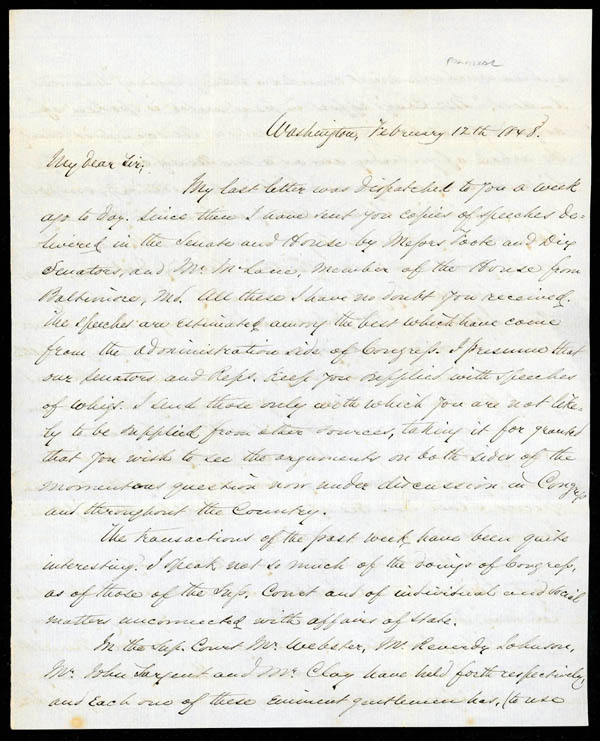 Washington, February 12th 1848.
My dear Sir,
My last letter was dispatched to you a week
ago to day. Since then I have sent you copies of speeches de-
livered in the Senate and House by Messrs Foote and Dix
Senators, and Mr McLane, member of the House from
Baltimore, Md. All these I have no doubt you received.
The speeches are estimated among the best which have come
from the administration side of Congress. I presume that
our Senators and Reps. keep you supplied with speeches
of whigs. I send those only with which you are not like-
ly to be supplied from other sources, taking it for granted
that you wish to see the arguments on both sides of the
momentous question now under discussion in Congress
and throughout the Country.
The transactions of the past week have been quite
interesting. I speak not so much of the doings of Congress,
as of those of the Sup. Court and of individual and social
matters unconnected with affairs of State.
In the Sup. Court Mr. Webster, Mr. Reverdy Johnson,
Mr. John Sargent and Mr. Clay have held forth respectively,
and each one of these eminent gentlemen has, (to use